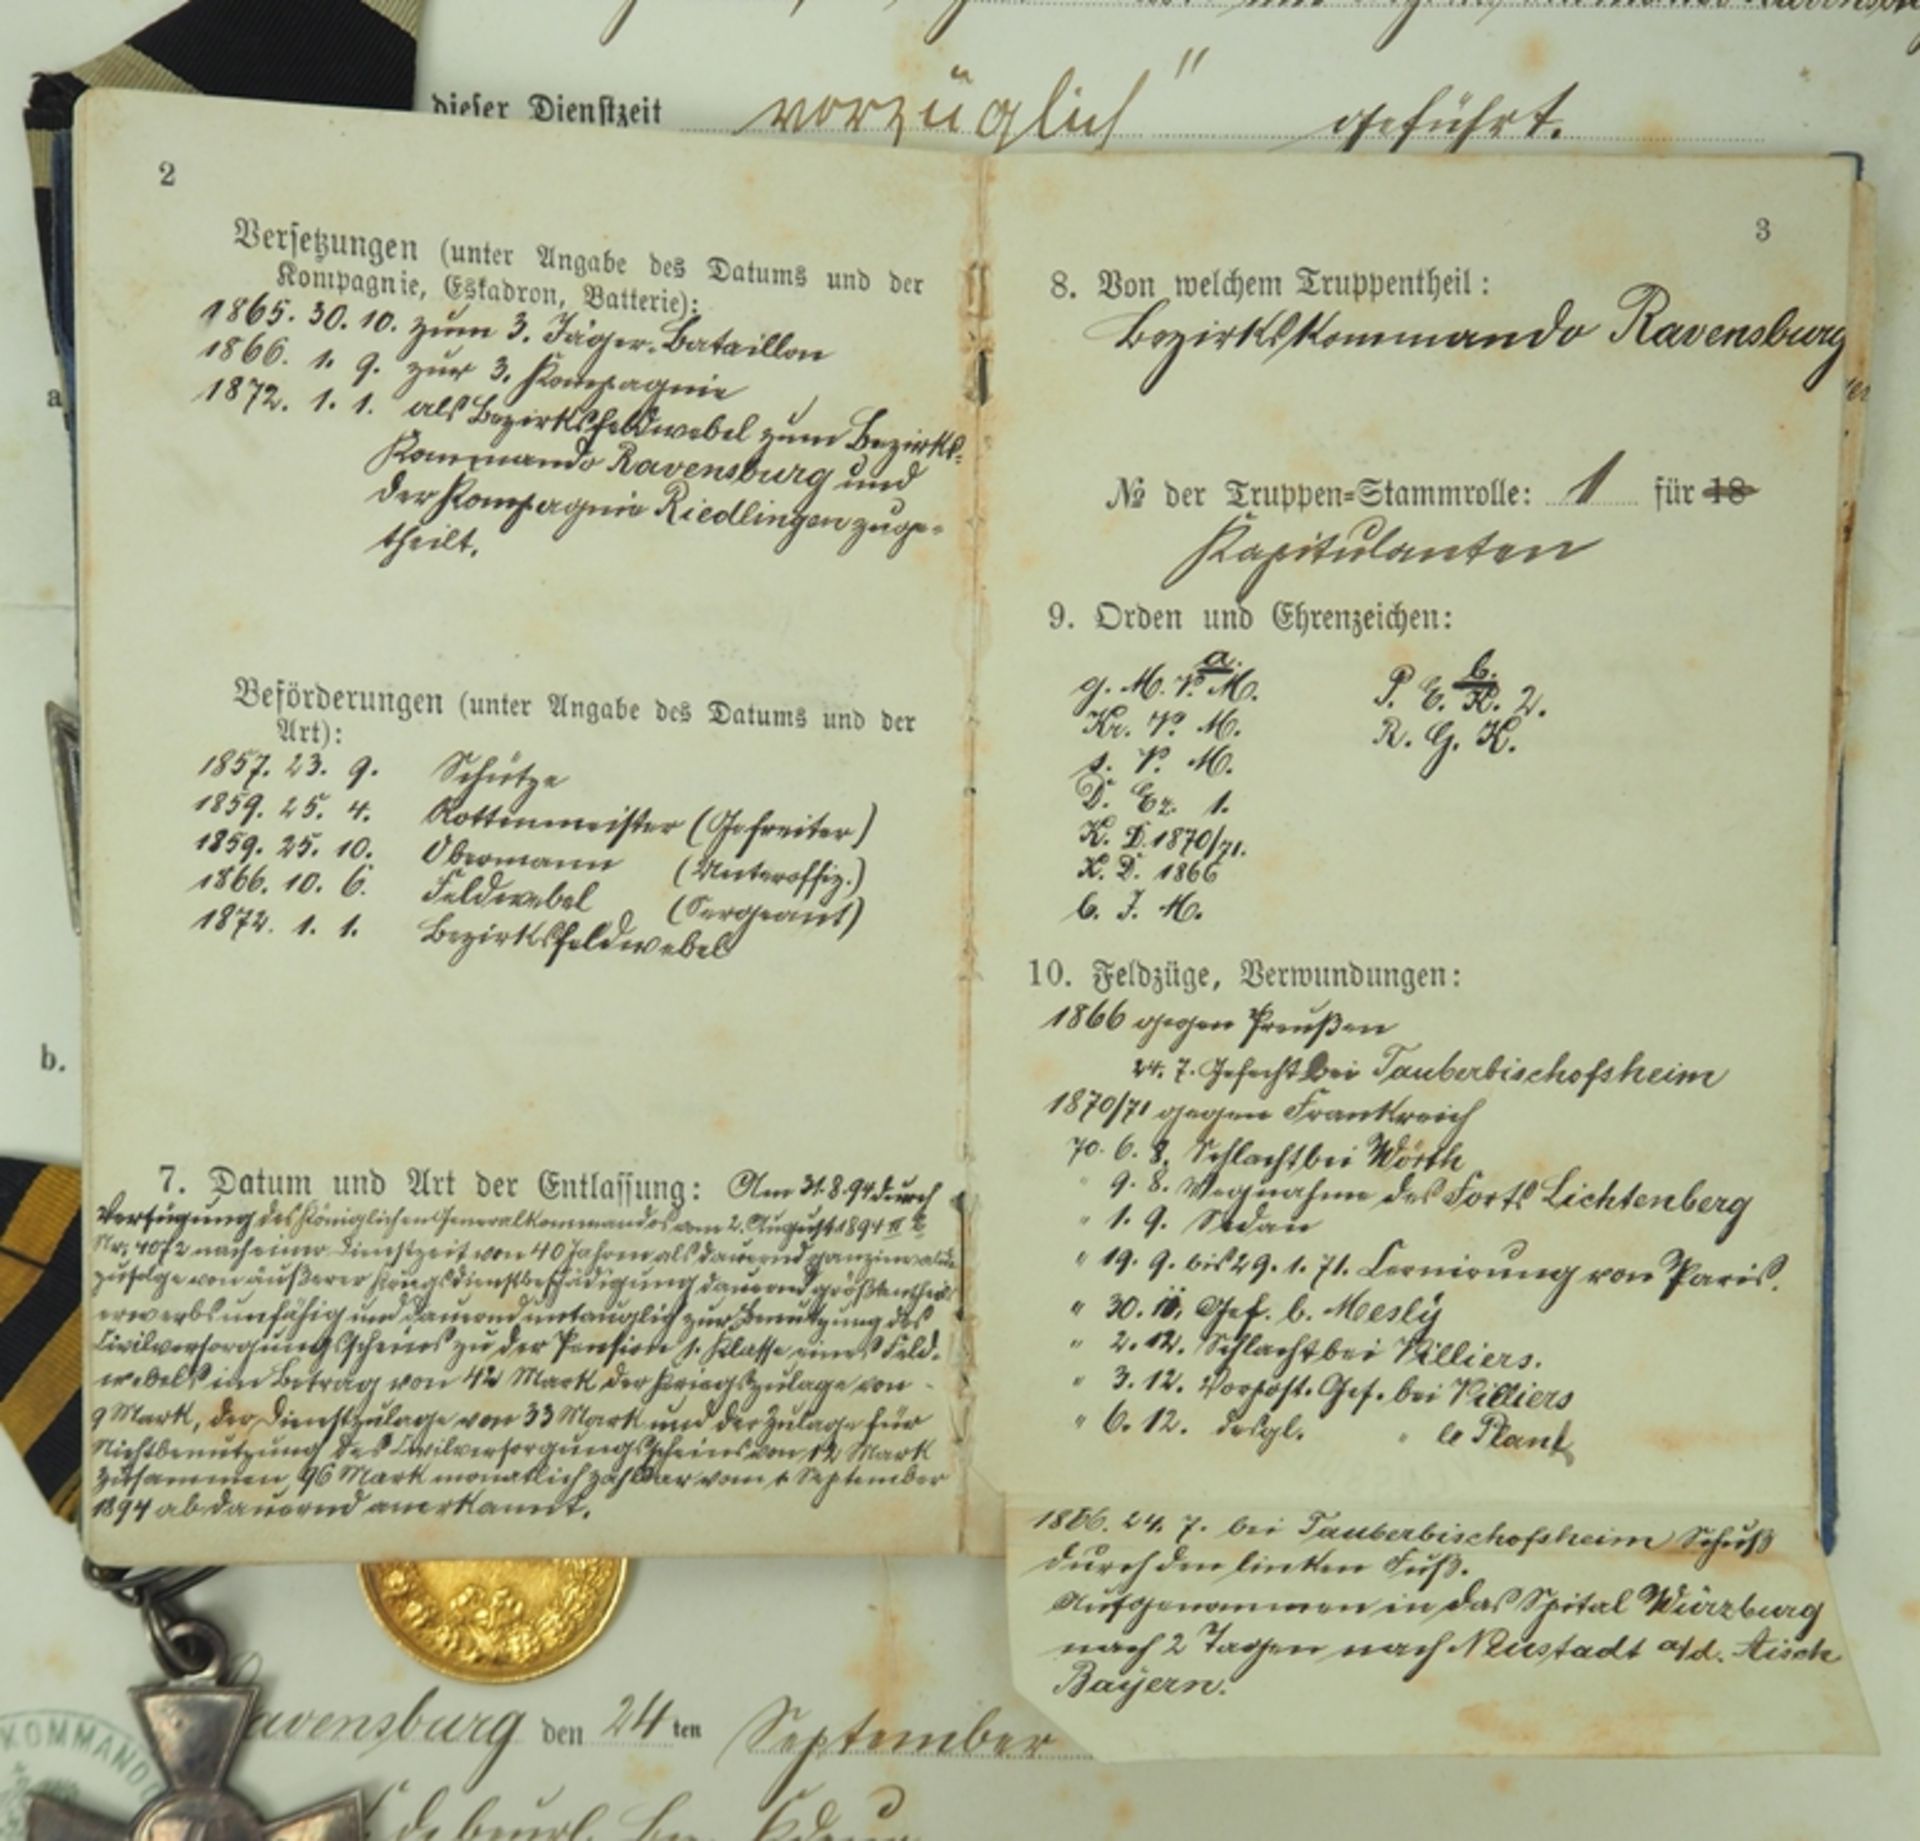 dieser Dienstzeit „vorzüglich" geführt.
2
Versetzungen (unter Angabe des Datums und der
Kompagnie, Eskadron, Batterie):
1865. 30. 10. zum 3. Jäger-Bataillon
1866. 1. 9. zur 3. Kompagnie
1872. 1. 1. als Bezirksfeldwebel zum Bezirks-
Kommando Ravensburg und
der Kompagnie Riedlingen zuge-
theilt.
Beförderungen (unter Angabe des Datums und der
Art):
1857. 23. 9. Schütze
1859. 25. 4. Rottenmeister (Gefreiter)
1859. 25. 10. Obermann (Unteroffiz.)
1866. 10. 6. Feldwebel (Sergeant)
1872. 1. 1. Bezirksfeldwebel
7. Datum und Art der Entlassung: Am 31.8.94 durch
Verfügung des Königlichen Generalkommandos vom 2. August 1894
Nr. 4072 nach einer Dienstzeit von 40 Jahren als dauernd ganzinvalide
zufolge von äußerer Kriegsdienstbeschädigung dauernd größtentheils
erwerbsunfähig und dauernd untauglich zur Benutzung des
Civilversorgungsscheins zu der Pension 1. Klasse eines Feld-
webels im Betrag von 42 Mark, der Kriegszulage von
9 Mark, der Dienstzulage von 33 Mark und der Zulage für
Nichtbenutzung des Civilversorgungsscheins von 12 Mark
zusammen 96 Mark monatlich zahlbar vom 1. September
1894 ab dauernd anerkannt.
3
8. Von welchem Truppentheil:
Bezirkskommando Ravensburg
№ der Truppen-Stammrolle: 1 für 18
Kapitulanten
9. Orden und Ehrenzeichen:
a. b.
g. M. V. M. P. E. K. 2.
Kr. V. M. R. G. K.
s. V. M.
D. Ez. 1.
K. D. 1870/71.
K. D. 1866
b. J. M.
10. Feldzüge, Verwundungen:
1866 gegen Preußen
24. 7. Gefecht bei Tauberbischofsheim
1870/71 gegen Frankreich
70. 6. 8. Schlacht bei Wörth
" 9. 8. Wegnahme des Forts Lichtenberg
" 1. 9. Sedan
" 19. 9. bis 29. 1. 71. Cernirung von Paris.
" 30. 11. Gef. b. Mesly
" 2. 12. Schlacht bei Villiers.
" 3. 12. Vorpost. Gef. bei Villiers
" 6. 12. desgl. " le Plant
1866. 24. 7. bei Tauberbischofsheim Schuß
durch den linken Fuß.
Aufgenommen in das Spital Würzburg
nach 2 Tagen nach Neustadt a/d. Aisch
Bayern.
a
b.
avensburg den 24ten September
KOMMANDO